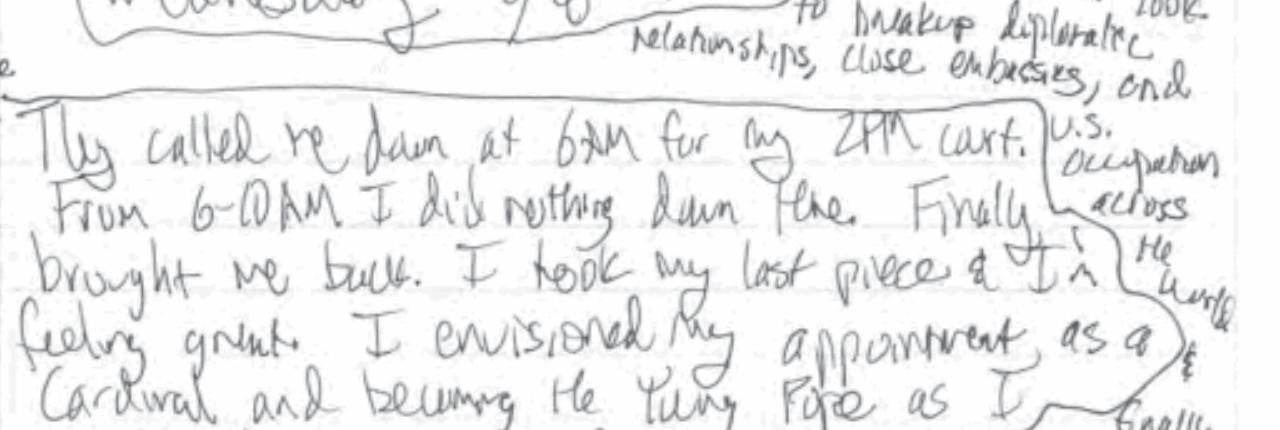 to breakup diplomatic
relationships, close embassies, and
They called me down at 6AM for my 2PM court.
From 6-10AM I did nothing down there. Finally
brought me back. I took my last piece & I'm
feeling great. I envisioned my appointment as a
Cardinal and becoming the Young Pope as I
U.S.
occupation
across
the
world
&
finally